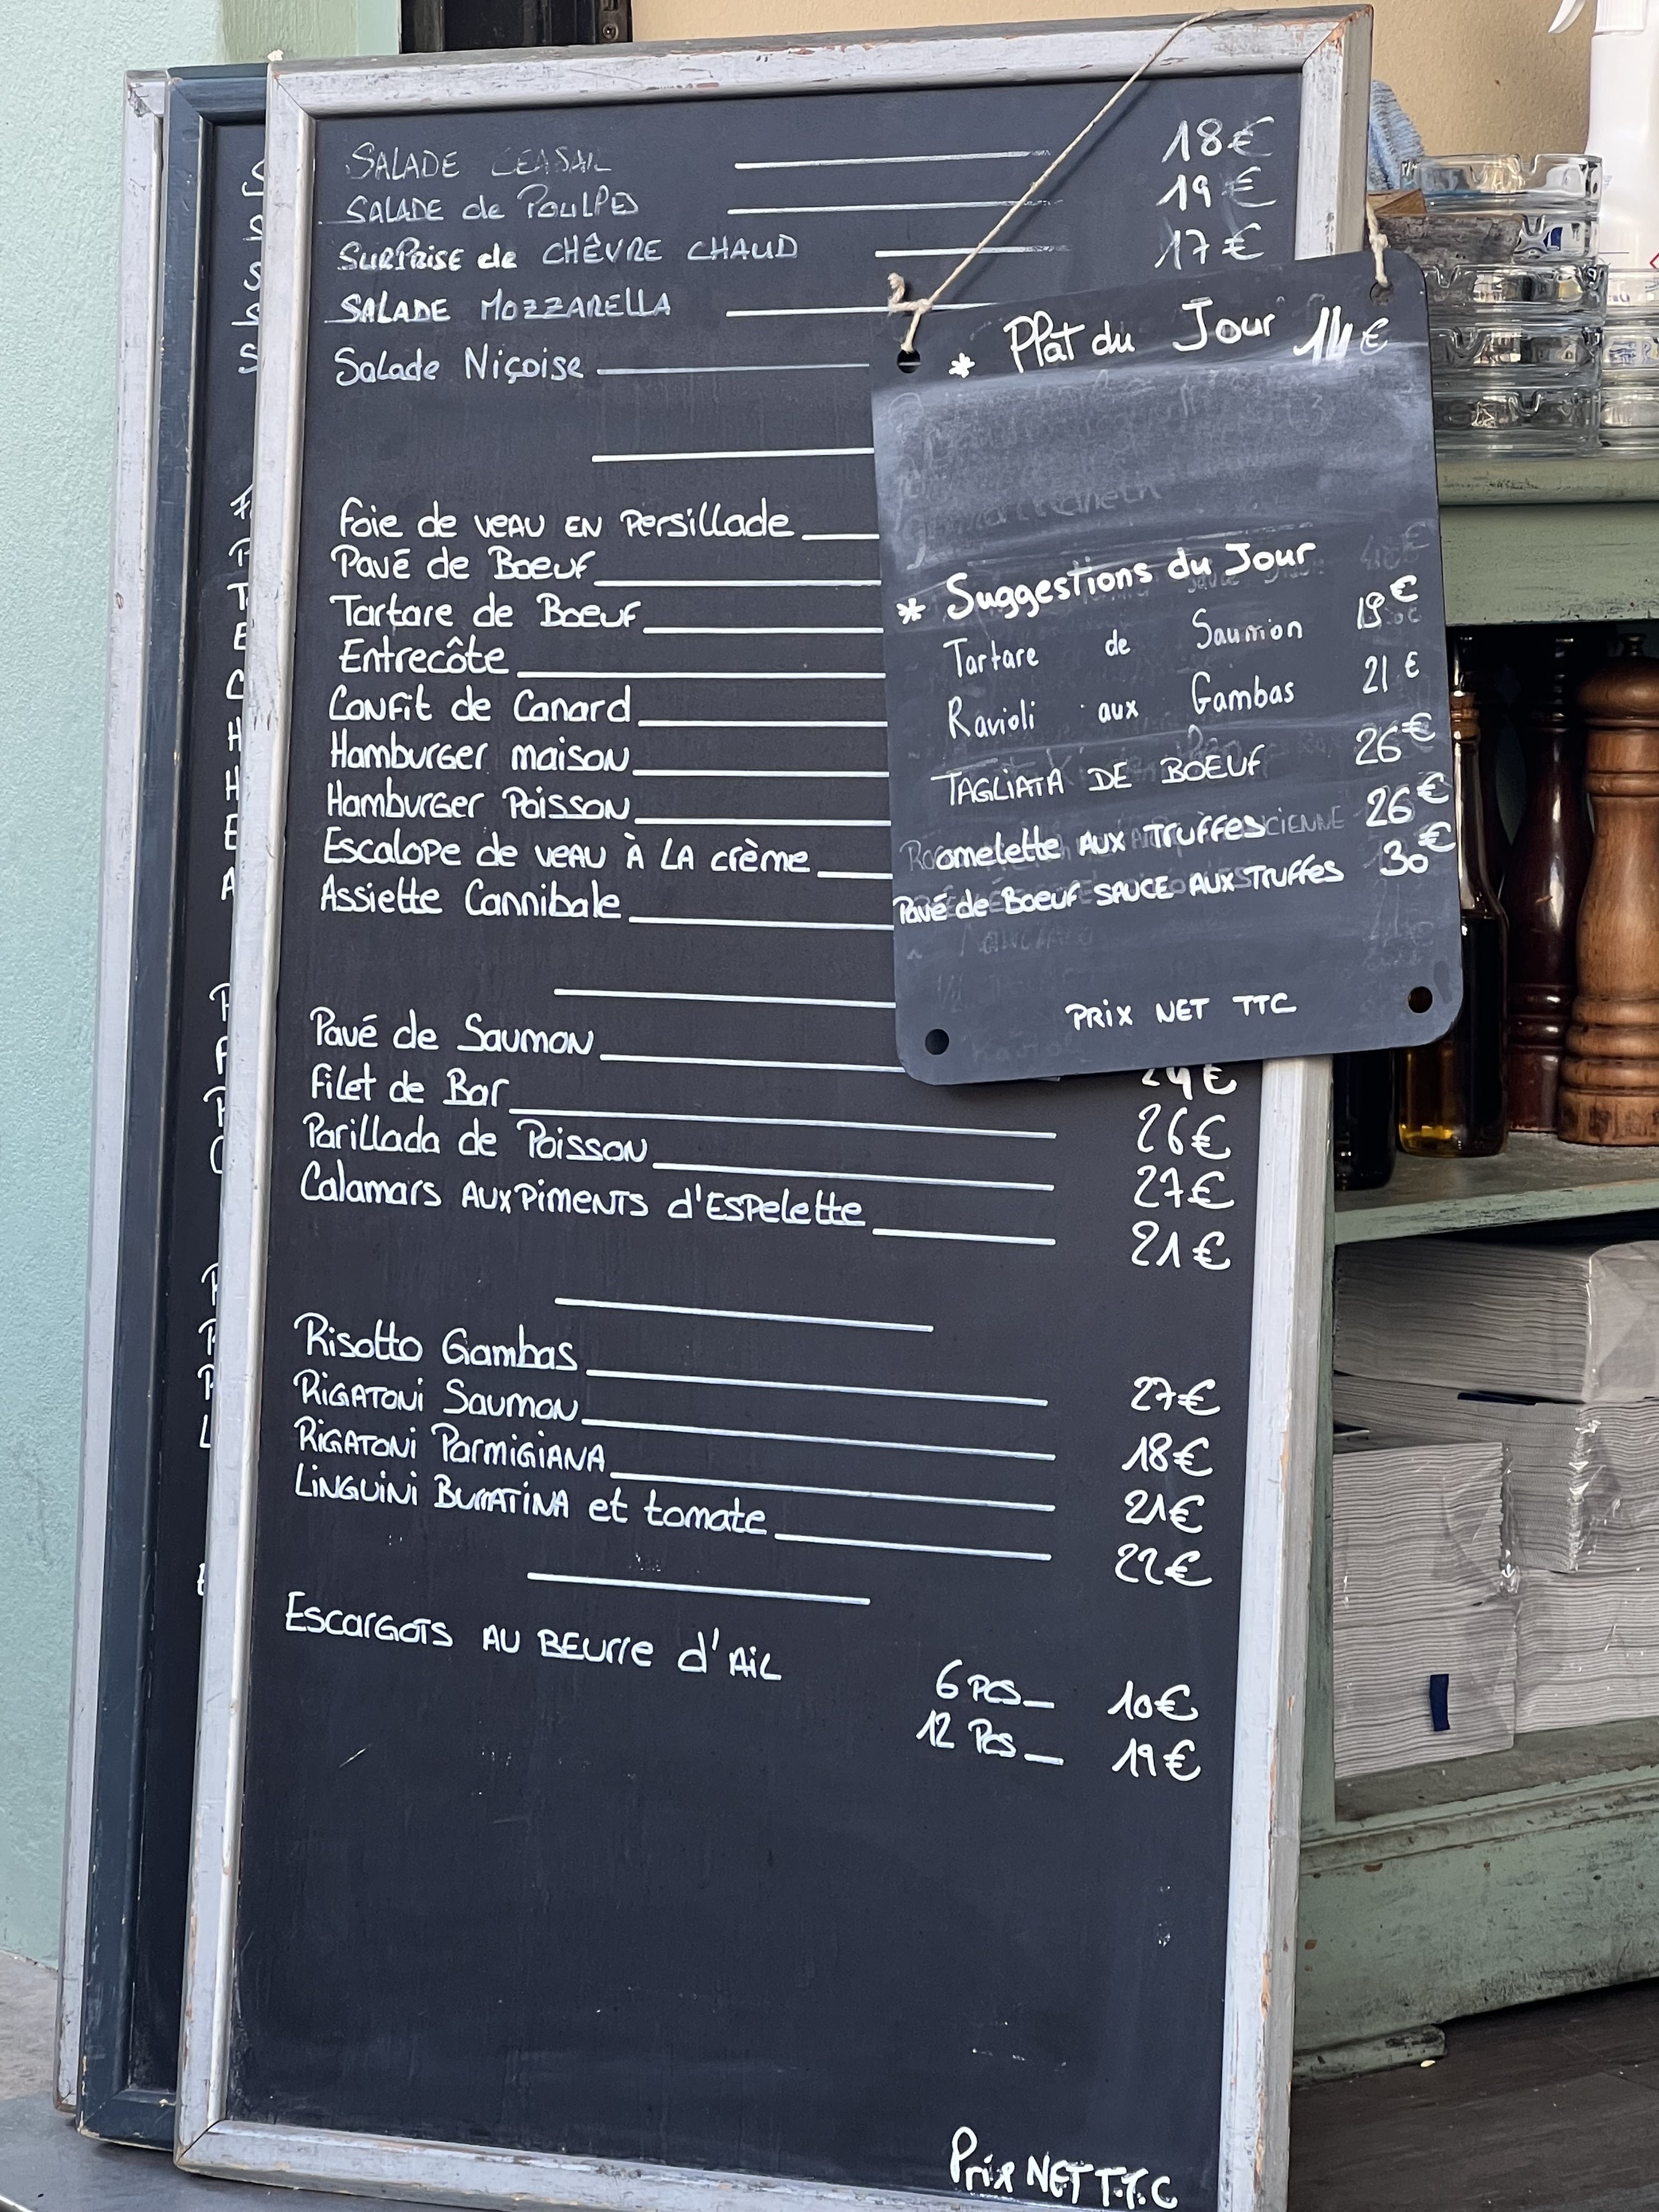 SALADE CEASAR 18€
SALADE de POULPES 19€
SURPRISE de CHÊVRE CHAUD 17€
SALADE MOZZARELLA
Salade Niçoise
Foie de VEAU EN Persillade
Pavé de Boeuf
Tartare de Boeuf
Entrecôte
Confit de Canard
Hamburger maison
Hamburger Poisson
Escalope de veau À LA crème
Assiette Cannibale
Pavé de Saumon 24€
Filet de Bar 26€
Parillada de Poisson 27€
Calamars AUX PIMENTS d'ESPelette 21€
Risotto Gambas 27€
RIGATONI Saumon 18€
RIGATONI Parmigiana 21€
LINGUINI BURRATINA et tomate 22€
Escargots AU BEURRE d'AIL
6 PCS 10€
12 PCS 19€
Prix NET T.T.C
* Plat du Jour 14€
* Suggestions du Jour
Tartare de Saumon 19€
Ravioli aux Gambas 21€
TAGLIATA DE BOEUF 26€
omelette AUX TRUFFES 26€
Pavé de Boeuf SAUCE AUX TRUFFES 30€
PRIX NET TTC